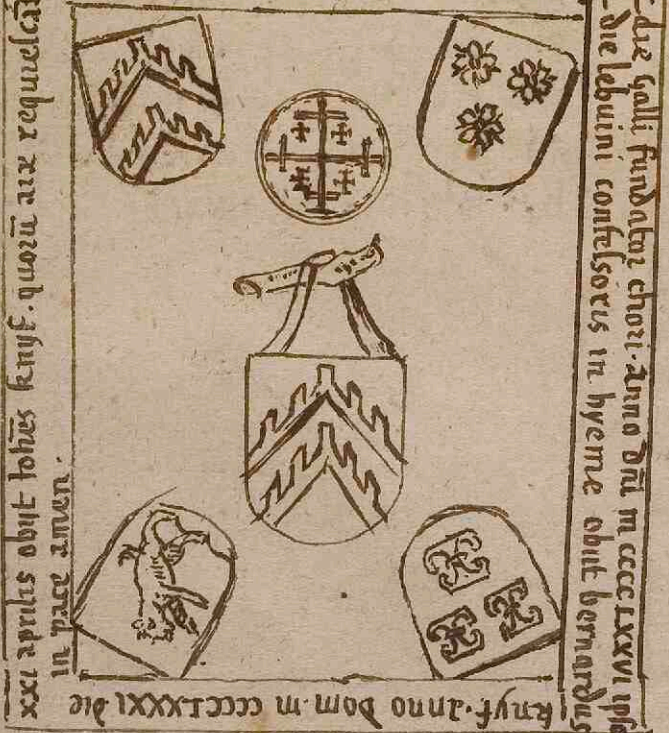 die galli fundator chori. Anno dn̄i m cccc Lxxvi ipso
die lebuini confessoris in hyeme obiit bernardus
knyf. anno dom. m ccccLxxxi. die
aprilis obiit Joh̄es knyf. quorū aie requiescāt
in pace amen.